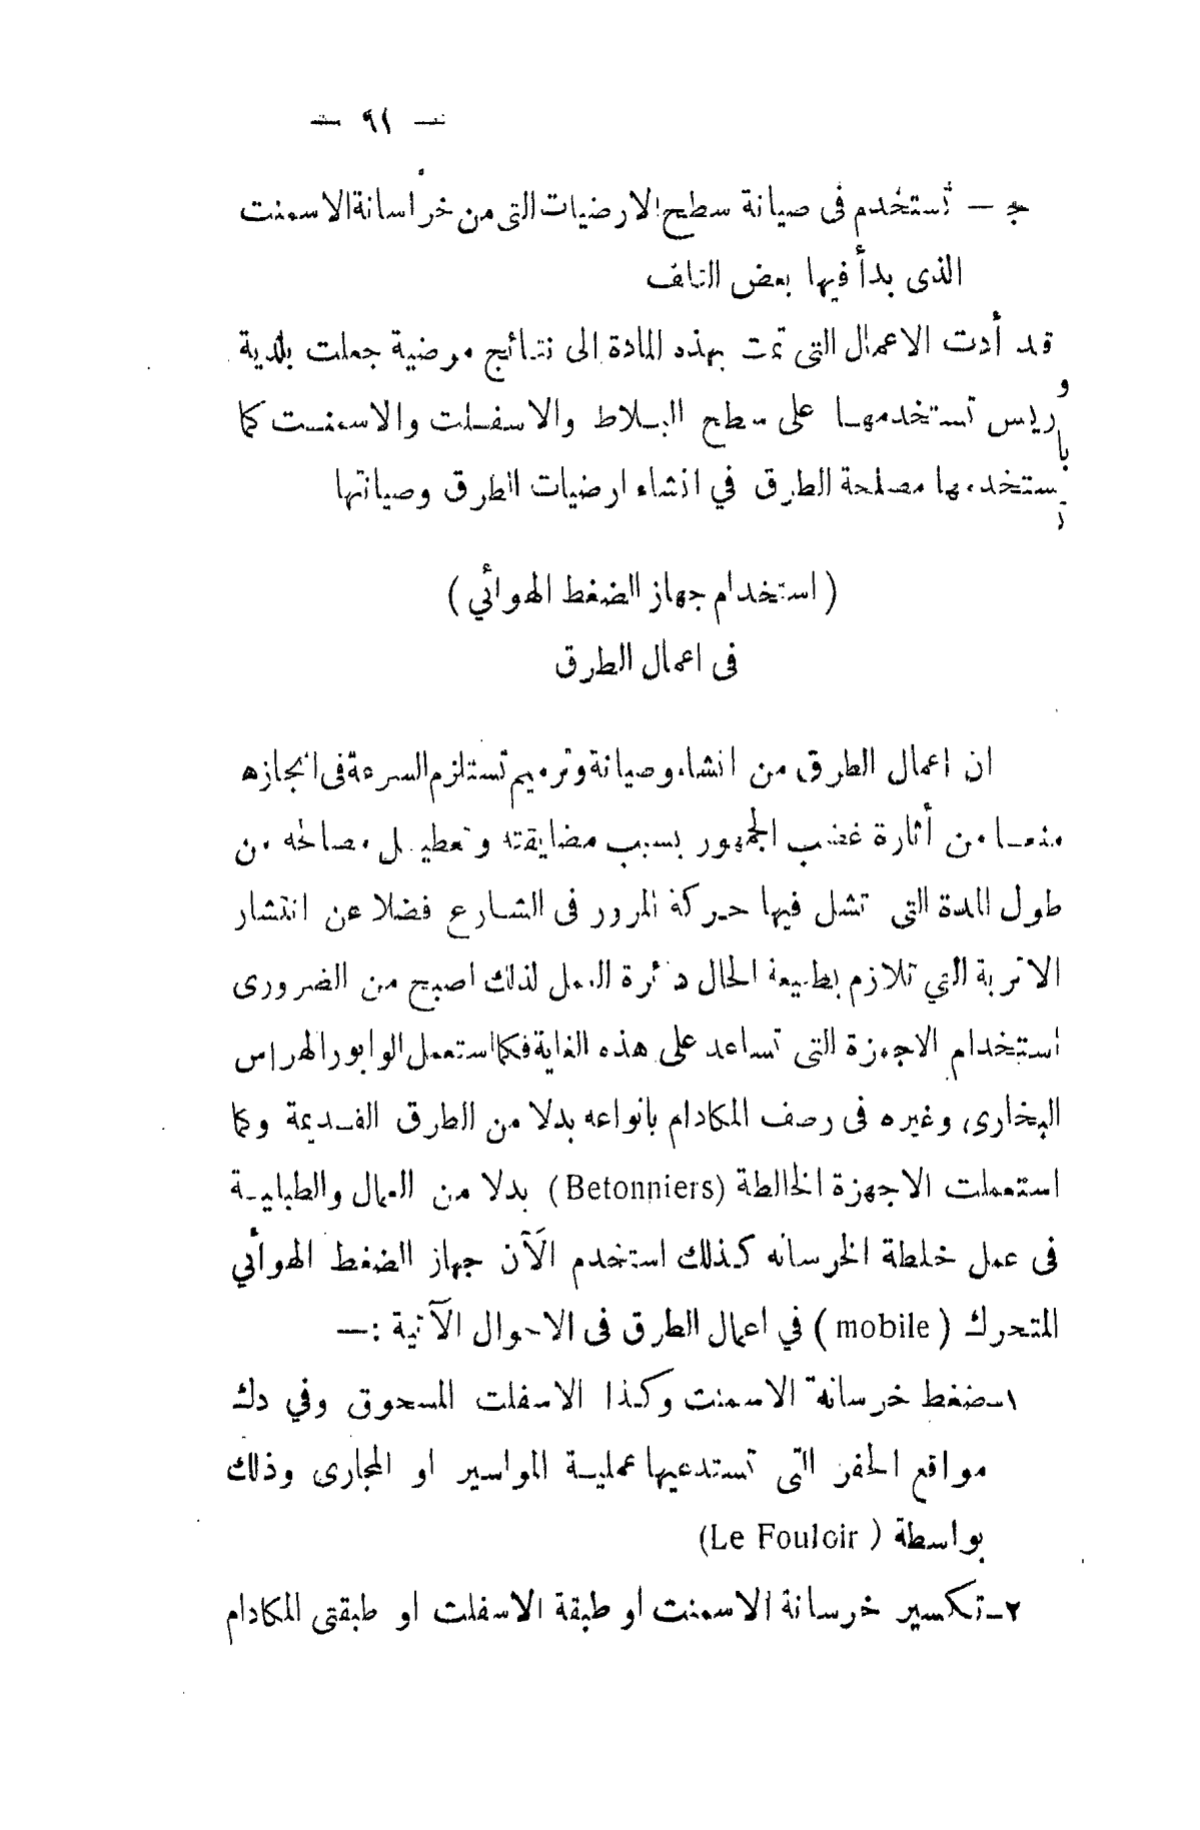 — ٩١ —
ج — تستخدم فى صيانة سطح الارضيات التى من خراسانة الاسمنت
الذى بدأ فيها بعض التلف
قد أدت الاعمال التى تمت بهذه المادة الى نتائج مرضية جعلت بلدية
باريس تستخدمها على سطح البلاط والاسفلت والاسمنت كما
تستخدمها مصلحة الطرق في انشاء ارضيات الطرق وصيانتها
( استخدام جهاز الضغط الهوائي )
فى اعمال الطرق
ان اعمال الطرق من انشاء وصيانة وترميم تستلزم السرعة فى انجازه
منعا من أثارة غضب الجمهور بسبب مضايقته وتعطيل مصالحه من
طول المدة التى تشل فيها حركة المرور فى الشارع فضلا عن انتشار
الاتربة التي تلازم بطبيعة الحال دائرة العمل لذلك اصبح من الضرورى
استخدام الاجهزة التى تساعد على هذه الغاية فكما استعمل الوابور الهراس
البخارى وغيره فى رصف المكادام بانواعه بدلا من الطرق القديمة وكما
استعملت الاجهزة الخالطة (Betonniers) بدلا من العمال والطبلية
فى عمل خلطة الخرسانه كذلك استخدم الآن جهاز الضغط الهوائي
المتحرك ( mobile ) في اعمال الطرق فى الاحوال الآتية :—
١ـ ضغط خرسانة الاسمنت وكذا الاسفلت المسحوق وفي دك
مواقع الحفر التى تستدعيها عملية المواسير او المجارى وذلك
بواسطة ( Le Fouloir)
٢ـ تكسير خرسانة الاسمنت او طبقة الاسفلت او طبقتى المكادام